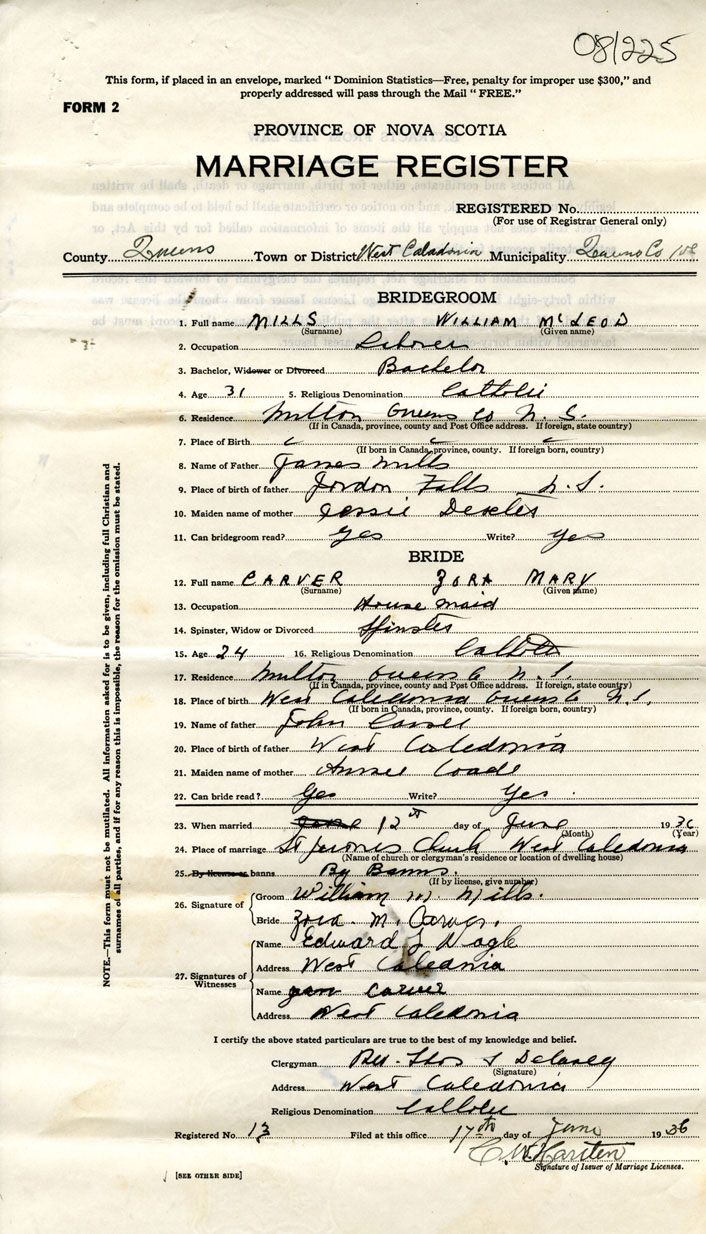 08/225
This form, if placed in an envelope, marked "Dominion Statistics—Free, penalty for improper use $300," and
properly addressed will pass through the Mail "FREE."
FORM 2
PROVINCE OF NOVA SCOTIA
MARRIAGE REGISTER
REGISTERED No.
(For use of Registrar General only)
County Queens Town or District West Caladonia Municipality Queens Co
BRIDEGROOM
1. Full name MILLS WILLIAM McLEOD
(Surname) (Given name)
2. Occupation Laborer
3. Bachelor, Widower or Divorced Bachelor
4. Age 31 5. Religious Denomination Catholic
6. Residence Milton Queens Co N. S.
(If in Canada, province, county and Post Office address. If foreign, state country)
7. Place of Birth
(If born in Canada, province, county. If foreign born, country)
8. Name of Father James Mills
9. Place of birth of father Jordon Falls N. S.
10. Maiden name of mother Jessie
11. Can bridegroom read? Yes Write? Yes
BRIDE
12. Full name CARVER ZORA MARY
(Surname) (Given name)
13. Occupation House maid
14. Spinster, Widow or Divorced Spinster
15. Age 24 16. Religious Denomination Catholic
17. Residence Milton Queens Co N. S.
(If in Canada, province, county and Post Office address. If foreign, state country)
18. Place of birth West Caledonia Queens Co N. S.
(If born in Canada, province, county. If foreign born, country)
19. Name of father John Carver
20. Place of birth of father West Caledonia
21. Maiden name of mother Annie
22. Can bride read? Yes Write? Yes.
23. When married June 12th day of June 1936
(Month) (Year)
24. Place of marriage St Jeromes Church West Caledonia
(Name of church or clergyman's residence or location of dwelling house)
25. By license or banns By Banns.
(If by license, give number)
26. Signature of
Groom William M. Mills.
Bride Zora. M. Carver.
27. Signatures of Witnesses
Name Edward J Nagle
Address West Caledonia
Name Carver
Address West Caledonia
I certify the above stated particulars are true to the best of my knowledge and belief.
Clergyman Rev. Thos J Delaney
(Signature)
Address West Caledonia
Religious Denomination Catholic
Registered No. 13 Filed at this office 17th day of June 1936
Signature of Issuer of Marriage Licenses.
[SEE OTHER SIDE]
NOTE.—This form must not be mutilated. All information asked for is to be given, including full Christian and
surnames of all parties, and if for any reason this is impossible, the reason for the omission must be stated.